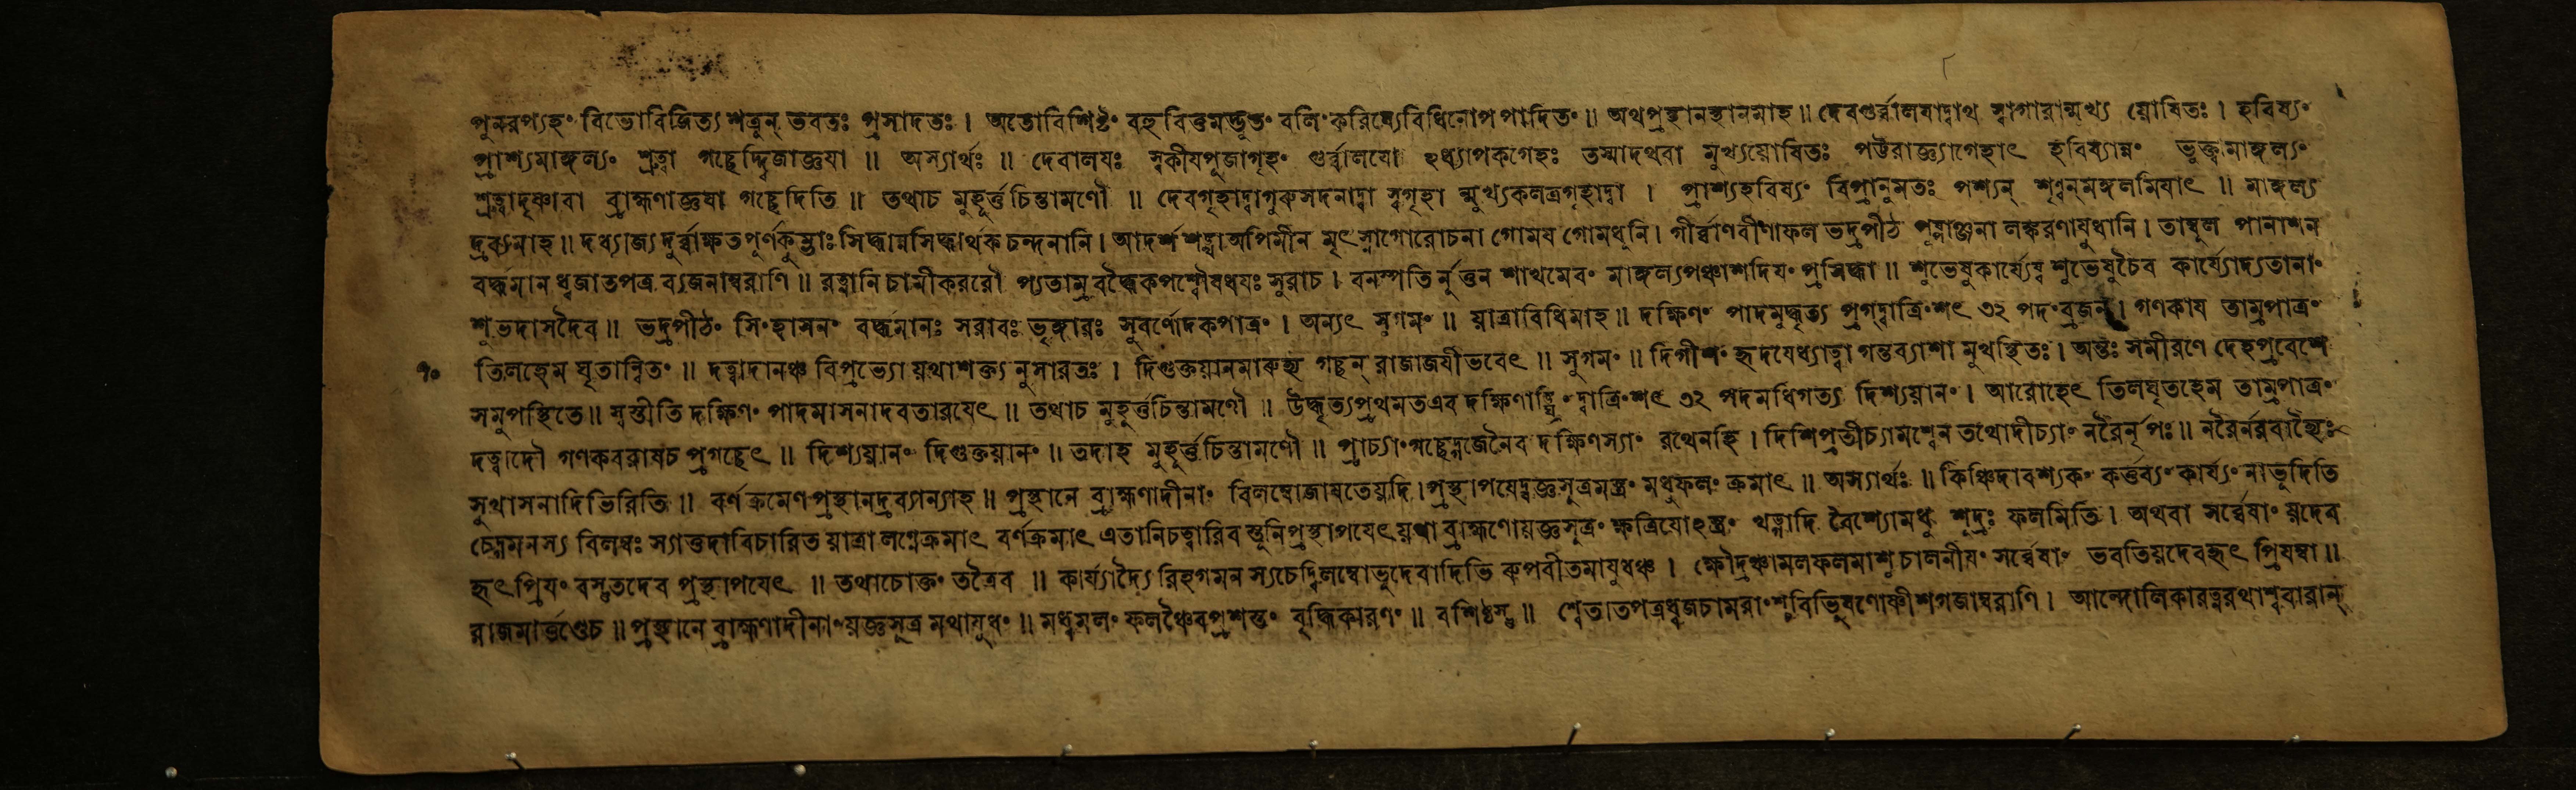 পুনরপ্যহং বিভোবিজিত্য শত্রুন্ ভবতঃ প্রসাদতঃ। অতোবিশিষ্টং বহুবিত্তমদ্ভুতং বলিং করিষ্যেবিধিনোপপাদিতং॥ অথপ্রস্থানস্থানমাহ॥ দেবগুর্ব্বালযাদ্বাথ স্বাগারান্মুখ্য যোষিতঃ। হবিষ্যং
প্রাশ্যমাঙ্গল্যং শ্রুত্বা গচ্ছেদ্দ্বিজাজ্ঞযা॥ অস্যার্থঃ॥ দেবালযঃ স্বকীযপূজাগৃহং গুর্ব্বালযো ঽধ্যাপকগেহঃ তস্মাদথবা মুখ্যযোষিতঃ পট্টরাজ্ঞ্যাগেহাৎ হবিষ্যান্নং ভুক্ত্বামাঙ্গল্যং
শ্রুত্বাদৃষ্ট্বাবা ব্রাহ্মণাজ্ঞযা গচ্ছেদিতি॥ তথাচ মুহূর্ত্তচিন্তামণৌ॥ দেবগৃহাদ্বাগুরুসদনাদ্বা স্বগৃহা ন্মুখ্যকলত্রগৃহাদ্বা। প্রাশ্যহবিষ্যং বিপ্রানুমতঃ পশ্যন্ শৃণ্বন্মঙ্গলমিযাৎ॥ মাঙ্গল্য
দ্রব্যমাহ॥ দধ্যাজ্যদুর্ব্বাক্ষতপূর্ণকুম্ভাঃসিদ্ধান্নসিদ্ধার্থকচন্দনানি। আদর্শশঙ্খাঅপিমীন মৃৎস্নাগোরোচনা গোময গোমধুনি। গীর্ব্বাণবীণাফল ভদ্রপীঠ পুষ্পাঞ্জনা লঙ্করণাযুধানি। তাম্বুল পানাশন
বর্দ্ধমান ধ্বজাতপত্র ব্যজনাম্বরাণি॥ রত্নানিচামীকররৌ প্যতাম্রবদ্ধৈকপশ্বৌষধযঃ সুরাচ। বনস্পতি র্নূতন শাখমেবং মাঙ্গল্যপঞ্চাশদিযং প্রসিদ্ধা॥ শুভেষুকার্য্যেষ্বশুভেষুচৈব কার্য্যোদ্যতানাং
শুভদাসদৈব॥ ভদ্রপীঠং সিংহাসনং বর্দ্ধমানঃ সরাবঃ ভৃঙ্গারঃ সুবর্ণোদকপাত্রং। অন্যৎ সুগমং॥ যাত্রাবিধিমাহ॥ দক্ষিণং পাদমুদ্ধৃত্য প্রগ্দ্বাত্রিংশৎ ৩২ পদংব্রজন্। গণকায তাম্রপাত্রং
৭০ তিলহেম ঘৃতান্বিতং॥ দত্বাদানঞ্চ বিপ্রভ্যো যথাশক্ত্য নুসারতঃ। দিগুক্তযানমারুহ্য গচ্ছন্ রাজাজযীভবেৎ॥ সুগমং॥ দিগীশং হৃদযেধ্যাত্বা গন্তব্যাশা মুখস্থিতঃ। অন্তঃ সমীরণে দেহপ্রবেশে
সমুপস্থিতে॥ স্বস্তীতি দক্ষিণং পাদমাসনাদবতারযেৎ॥ তথাচ মুহূর্ত্তচিন্তামণৌ॥ উদ্ধৃত্যপ্রথমতএব দক্ষিণাঙ্ঘ্রিং দ্বাত্রিংশৎ ৩২ পদমধিগত্য দিশ্যযানং। আরোহেৎ তিলঘৃতহেম তাম্রপাত্রং
দত্বাদৌ গণকবরাযচ প্রগচ্ছেৎ॥ দিশ্যযানং দিগুক্তযানং॥ তদাহ মুহূর্ত্তচিন্তামণৌ॥ প্রাচ্যাংগচ্ছেদ্গজেনৈব দক্ষিণস্যাং রথেনহি। দিশিপ্রতীচ্যামশ্বেন তথোদীচ্যাং নরৈর্নৃপঃ॥ নরৈর্নরবাহ্যৈঃ
সুখাসনাদিভিরিতি॥ বর্ণক্রমেণপ্রস্থানদ্রব্যান্যাহ॥ প্রস্থানে ব্রাহ্মণাদীনাং বিলম্বোজাযতেযদি।প্রস্থাপযেদ্যজ্ঞসূত্রমস্ত্রং মধুফলং ক্রমাৎ॥ অস্যার্থঃ॥ কিঞ্চিদাবশ্যকং কর্ত্তব্যং কার্য্যং নাভূদিতি
চেদ্গমনস্য বিলম্বঃ স্যাত্তদাবিচারিত যাত্রা লগ্নেক্রমাৎ বর্ণক্রমাৎ এতানিচত্বারিব স্তুনিপ্রস্থাপযেৎ যথা ব্রাহ্মণোযজ্ঞসূত্রং ক্ষত্রিযোঽস্ত্রং খড্গাদি বৈশ্যোমধু শূদ্রঃ ফলমিতি। অথবা সর্ব্বেষাং যদেব
হৃৎপ্রিযং বস্তুতদেব প্রস্থাপযেৎ॥ তথাচোক্তং তত্রৈব॥ কার্য্যাদ্যৈ রিহগমন স্যচেদ্বিলম্বোভূদেবাদিভি রুপবীতমাযুধঞ্চ। ক্ষৌদ্রঞ্চামলফলমাশুচালনীযং সর্ব্বেষাং ভবতিযদেবহৃৎ প্রিযম্বা॥
রাজমার্ত্তণ্ডেচ॥ প্রস্থানে ব্রাহ্মণাদীনাং যজ্ঞসূত্র মথাযুধং॥ মধ্বমলং ফলঞ্চৈবপ্রশস্তং বৃদ্ধিকারণং॥ বশিষ্ঠস্তু॥ শ্বেতাতপত্রধ্বজচামরাংশুবিভূষণোষ্ণীশগজাম্বরাণি। আন্দোলিকারত্নরথাশ্ববারান্